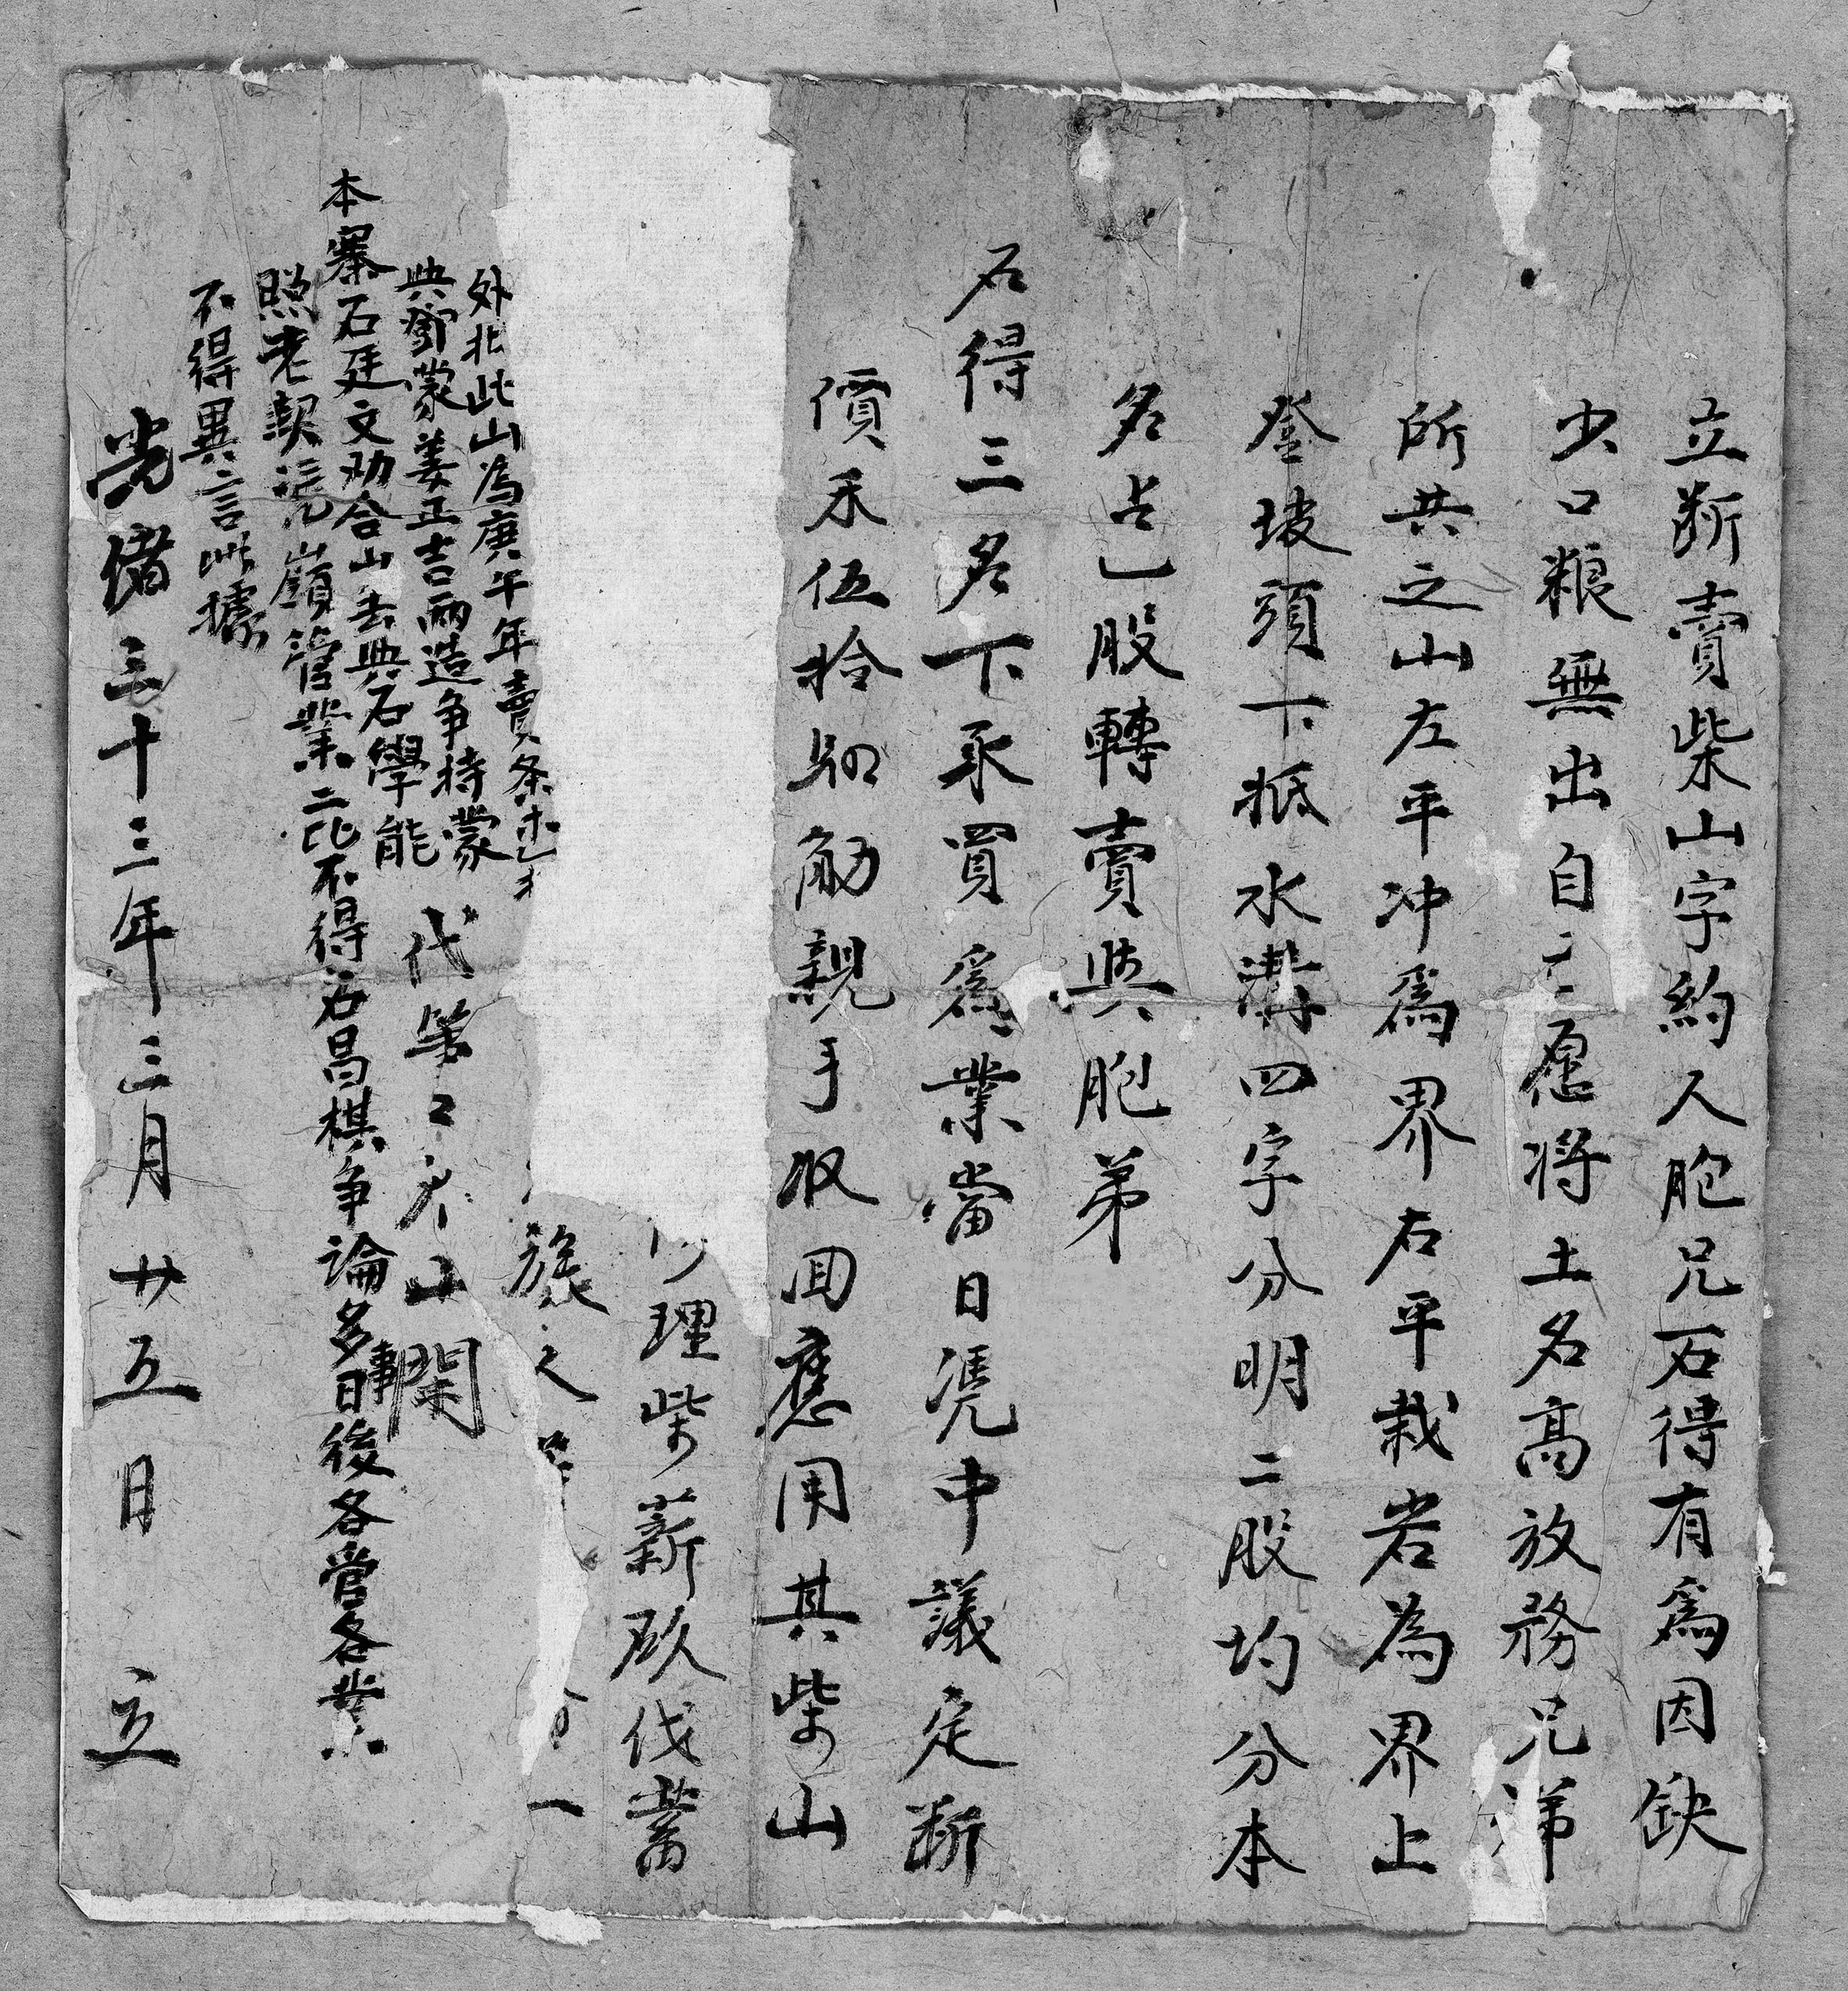 立断賣柴山字約人胞兄石得有為因缺
少口粮無出自二愿将土名高放務兄弟
所共之山左平冲為界右平栽岩為界上
登坡頭下抵水溝四字分明二股均分本
名占乚股轉賣與胞弟
石得三名下承買為業當日凴中議定断
價禾伍拾觔親手收囬應用其柴山
理柴薪砍伐蓄
族之
一
外批此山為庚午年賣条
與劉蒙姜正吉兩造争持蒙
本寨石廷文劝合山去與石學能
代筆
山閑
照老契凴嶺管業二比不得石昌棋争論多事日後各管各業
不得異言此據
光緒三十三年三月廿五日 立